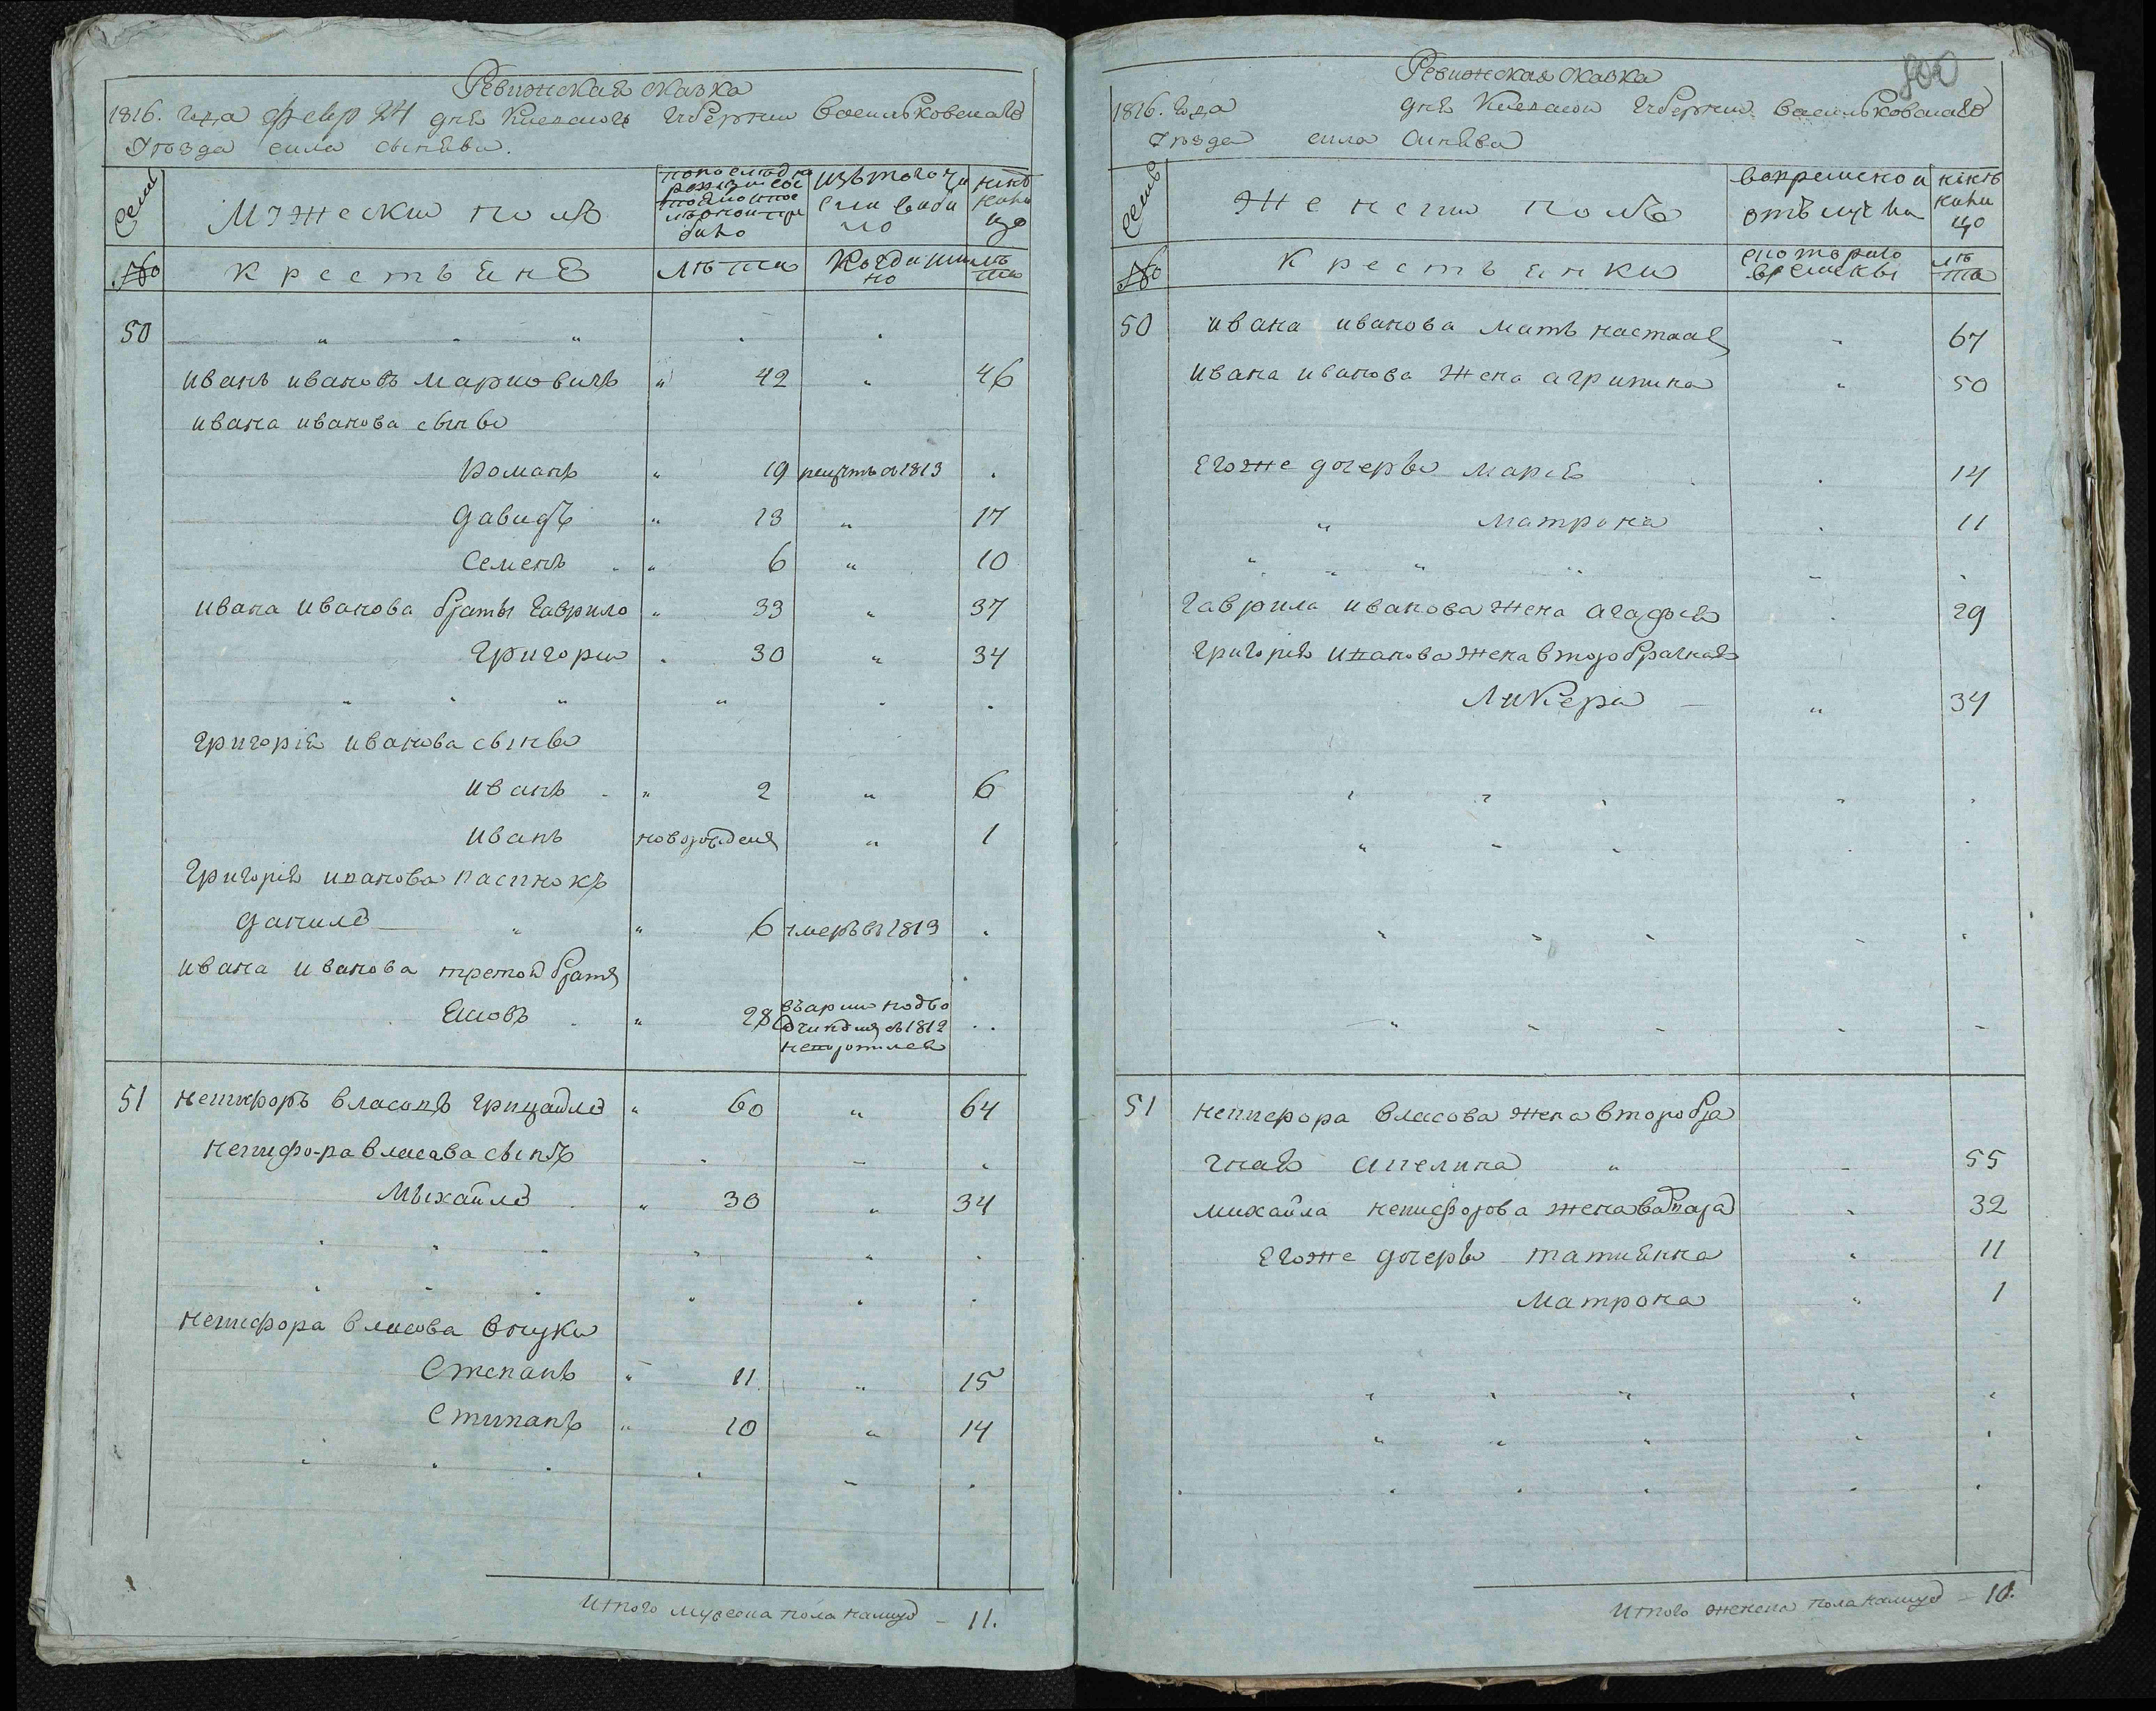 Ревижская сказка
1816. года февр 24 дня Киевской губернии васильковскаго
уезда села сынявы.
семьи
Мужески полъ
попоследней
ревизии сос
тояло и после
изъ того чи
сла выбы
ло
ныне
нали
цо
№
крестьяне
лѣта
Когда имян
но
лѣ
та
50
иванъ ивановъ марковичъ " 42 " 46
ивана иванова сынъ
романъ " 19 рекрутъ в 1813
давидъ " 13 " 17
Семенъ " 6 " 10
ивана иванова братъ гаврило " 33 " 37
григорий 30 " 34
григорія иванова сынъ
иванъ " 2 " 6
иванъ новорожденъ " 1
григорія иванова пасинокъ
данило " 6 умеръ в 1813
ивана иванова третой братъ
Яковъ " 28 въ арми подво
дчикомъ в 1812
неворотился
51 некифоръ власовъ грицайло " 60 " 64
некифора власава сынъ
Михайло " 30 " 34
некифора власова внуки
Степанъ " 11 " 15
Стипанъ " 10 " 14
итого мужеска пола налицо – 11.
Ревижская сказка
200
1816. года дня Киевской губернии васильковскаго
уезда села синява
семьи
Женски полъ
вовременой
отълучки
нинѣ
нали
цо
№
крестьянки
скоторого
времены
лѣ
та
50 ивана иванова мать настася 67
ивана иванова жена агрипина " 50
егоже дочеръ марія 14
" матрона 11
гаврила иванова жена агафія 29
григорія иванова жена второбрачная
Ликера " 34
51 некифора власова жена второбра
чная ангелина " 55
михайла некифорова жена варвара 32
егоже дочеръ татиянна 11
матрона " 1
итого женска пола налицо – 10.